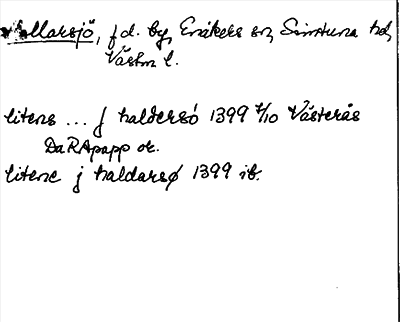 Hallarsjö, f.d. by, Enåkers sn, Simtuna hd,
Västm l.
litens ... j haldersó 1399 4/10 Västerås
DaRApapp or.
litene j haldarsø 1399 ib.